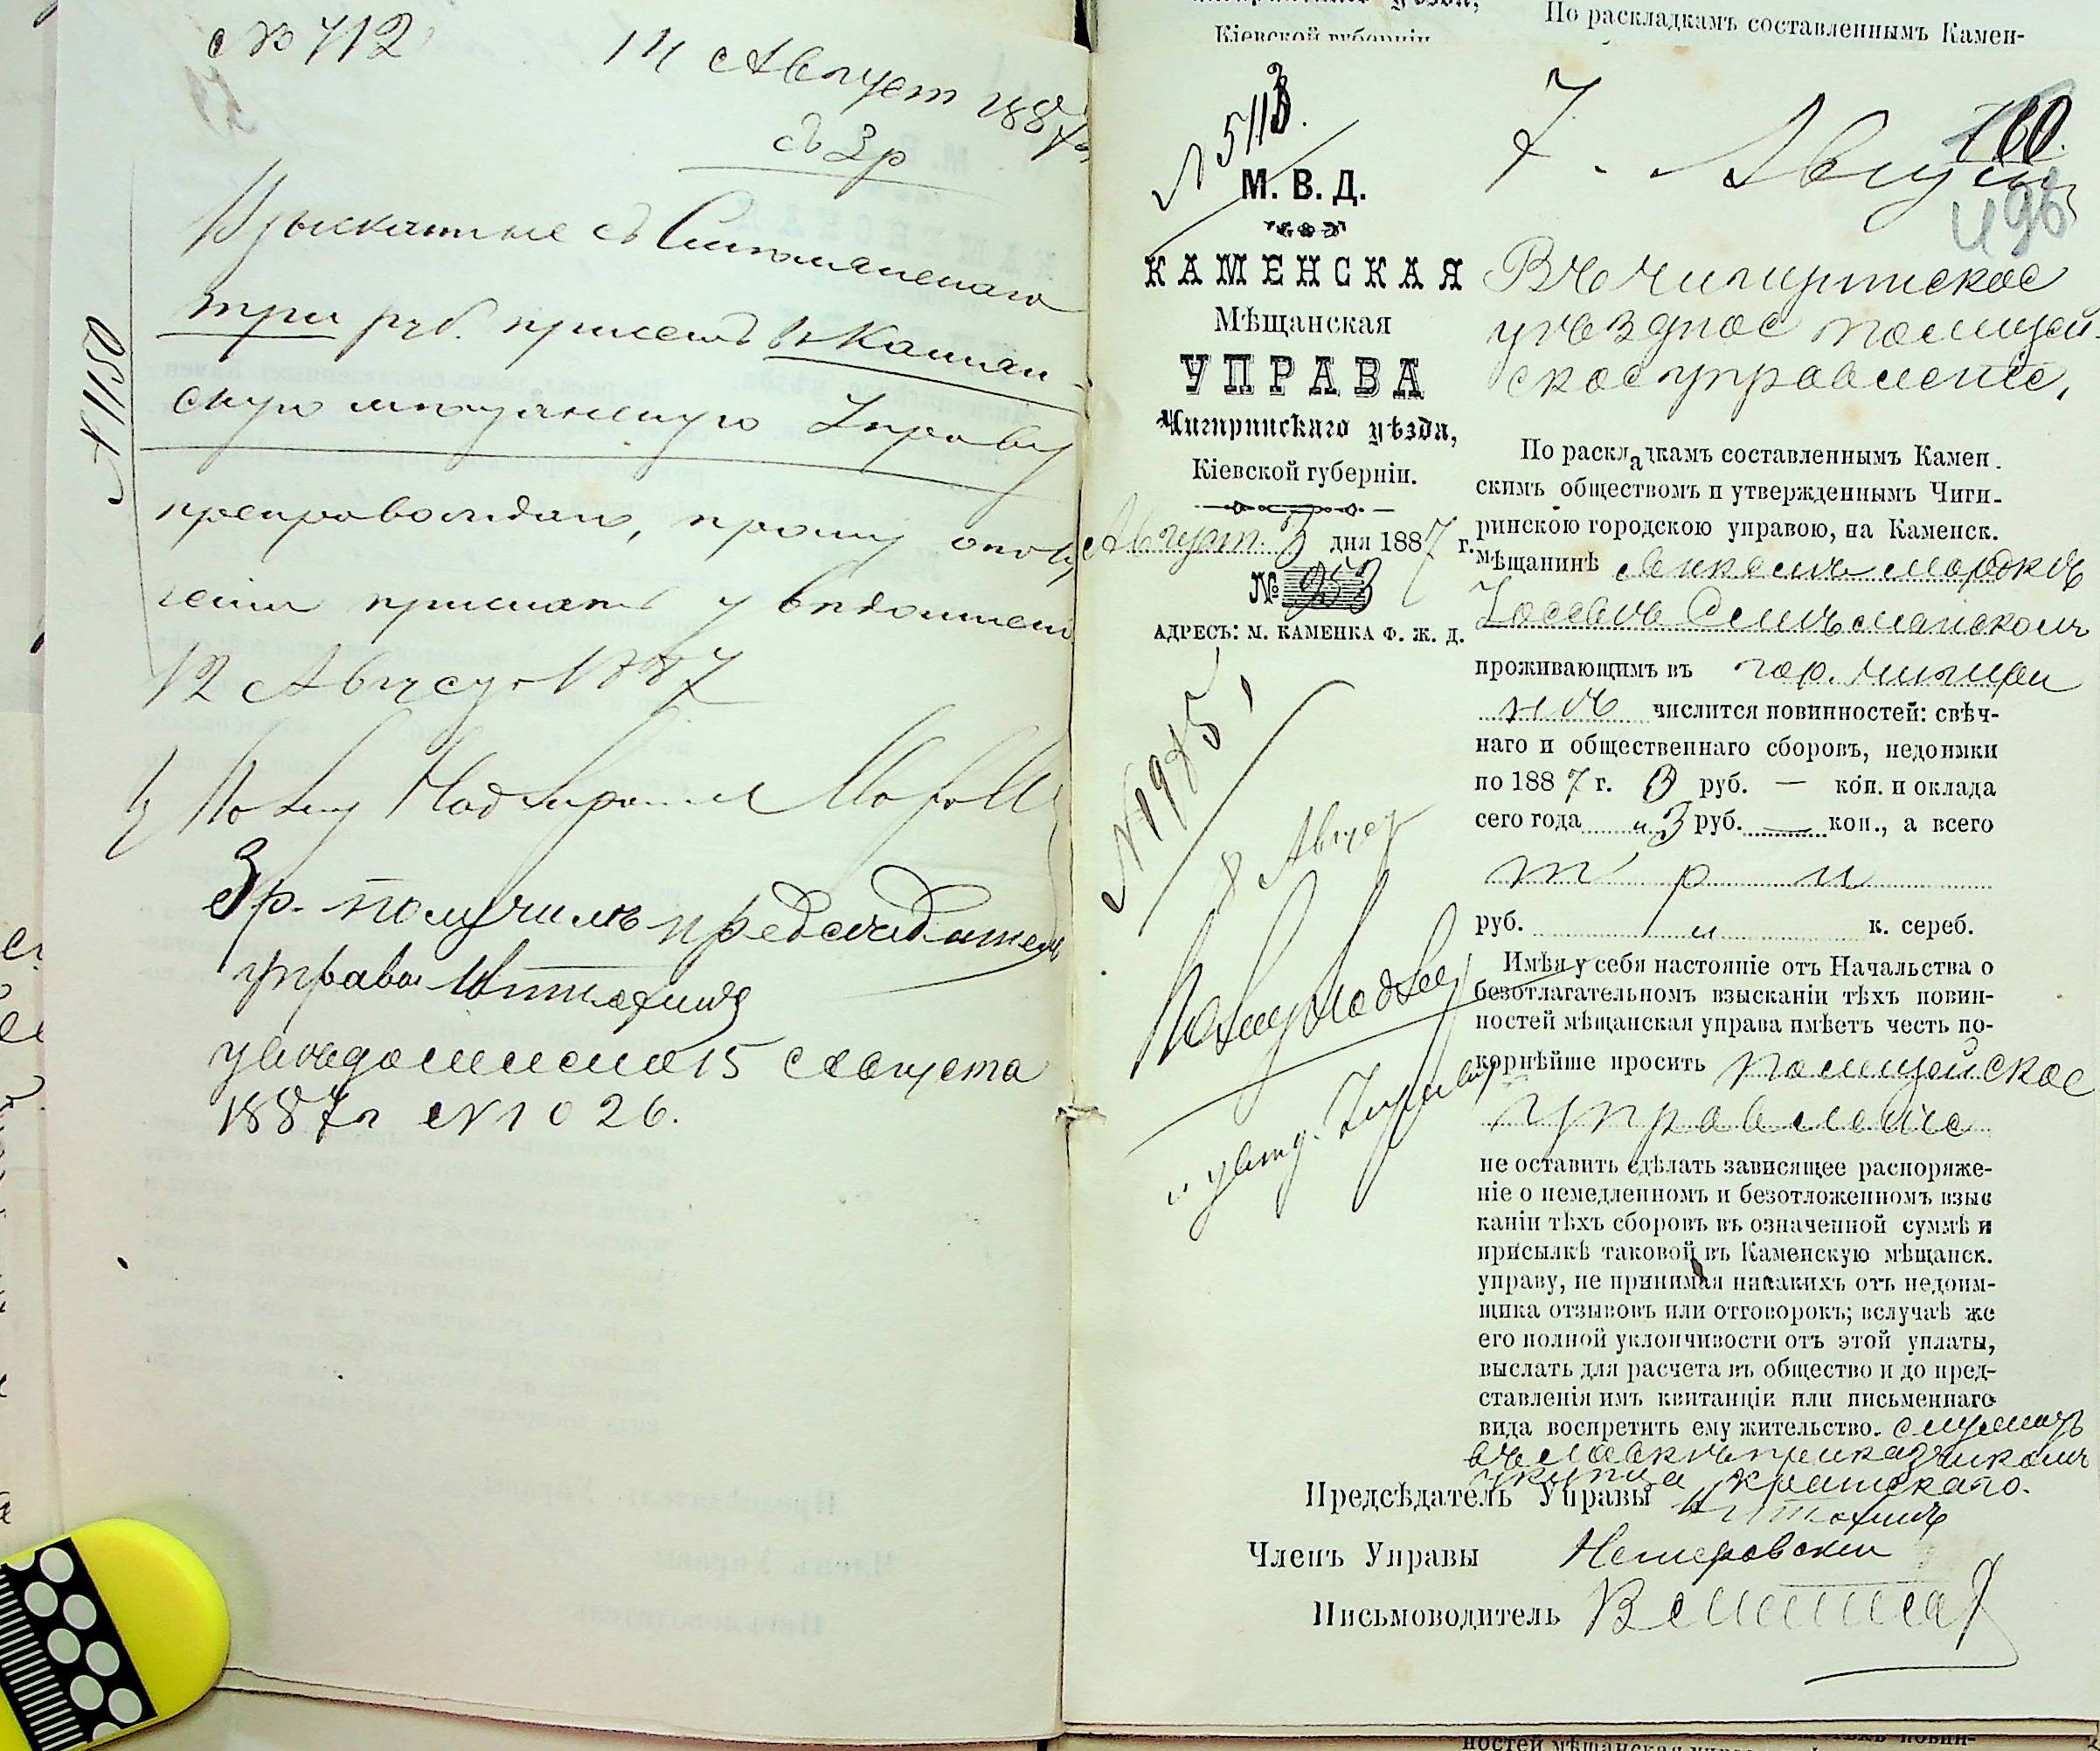 № 712
14 Август 1887 г
съ 3 р
№ 1150
Взысканные съ Симилянскаго
три руб. при семъ въ Камен-
скую мещанскую Управу
препровождаю, прошу о полу
чении прислать уведомлен
12 Август 1887
3 р. получилъ председатель
управы
уведомлено 15 Августа
1887 г № 1026.
Кіевской губерніи
По раскладкамъ составленнымъ Камен-
№ 5113.
7. Август
160.
496
М. В. Д.
КАМЕНСКАЯ
Мѣщанская
УПРАВА
Чигиринскаго уѣзда,
Кіевской губерніи.
Август 3 дня 1887 г.
№ 953
АДРЕСЪ: М. КАМЕНКА Ф. Ж. Д.
№ 1975
8 Август
Въ Чигиринское
уездное полицей-
ское управленіе,
По раскладкамъ составленнымъ Камен.
скимъ обществомъ и утвержденнымъ Чиги-
ринскою городскою управою, на Каменск.
мѣщанинѣ
проживающимъ въ гор. Чигири
нѣ числится повинностей: свѣч-
наго и общественнаго сборовъ, недоимки
по 1887 г. 3 руб. — коп. и оклада
сего года " 3 руб. — коп., а всего
три
руб. " к. сереб.
Имѣя у себя настояніе отъ Начальства о
безотлагательномъ взысканіи тѣхъ повин-
ностей мѣщанская управа имѣетъ честь по-
корнѣйше просить полицейское
управленіе
не оставить сдѣлать зависящее распоряже-
ніе о немедленномъ и безотложенномъ взыс
каніи тѣхъ сборовъ въ означенной суммѣ и
присылкѣ таковой въ Каменскую мѣщанск.
управу, не принимая никакихъ отъ недоим-
щика отзывовъ или отговорокъ; вслучаѣ же
его полной уклончивости отъ этой уплаты,
выслать для расчета въ общество и до пред-
ставленія имъ квитанціи или письменнаго
вида воспретить ему жительство. служитъ
въ лавкѣ приказчикомъ
у купца Крамскаго.
Предсѣдатель Управы
Членъ Управы Немеровскии
Письмоводитель